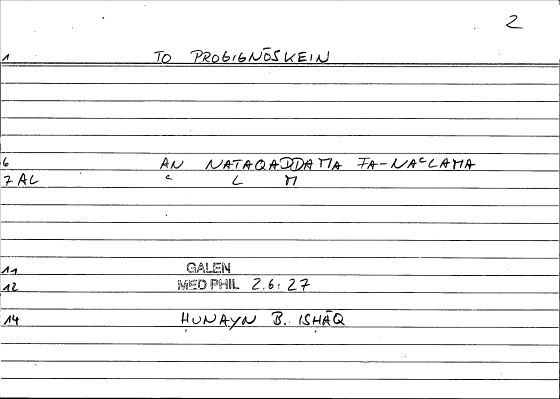 2
1 TO PROGIGNŌSKEIN
6 AN NATAQADDAMA FA-NAᶜLAMA
7 AL ᶜ L M
11 GALEN
12 MED PHIL 2.6:27
14 ḤUNAYN B. ISḤĀQ